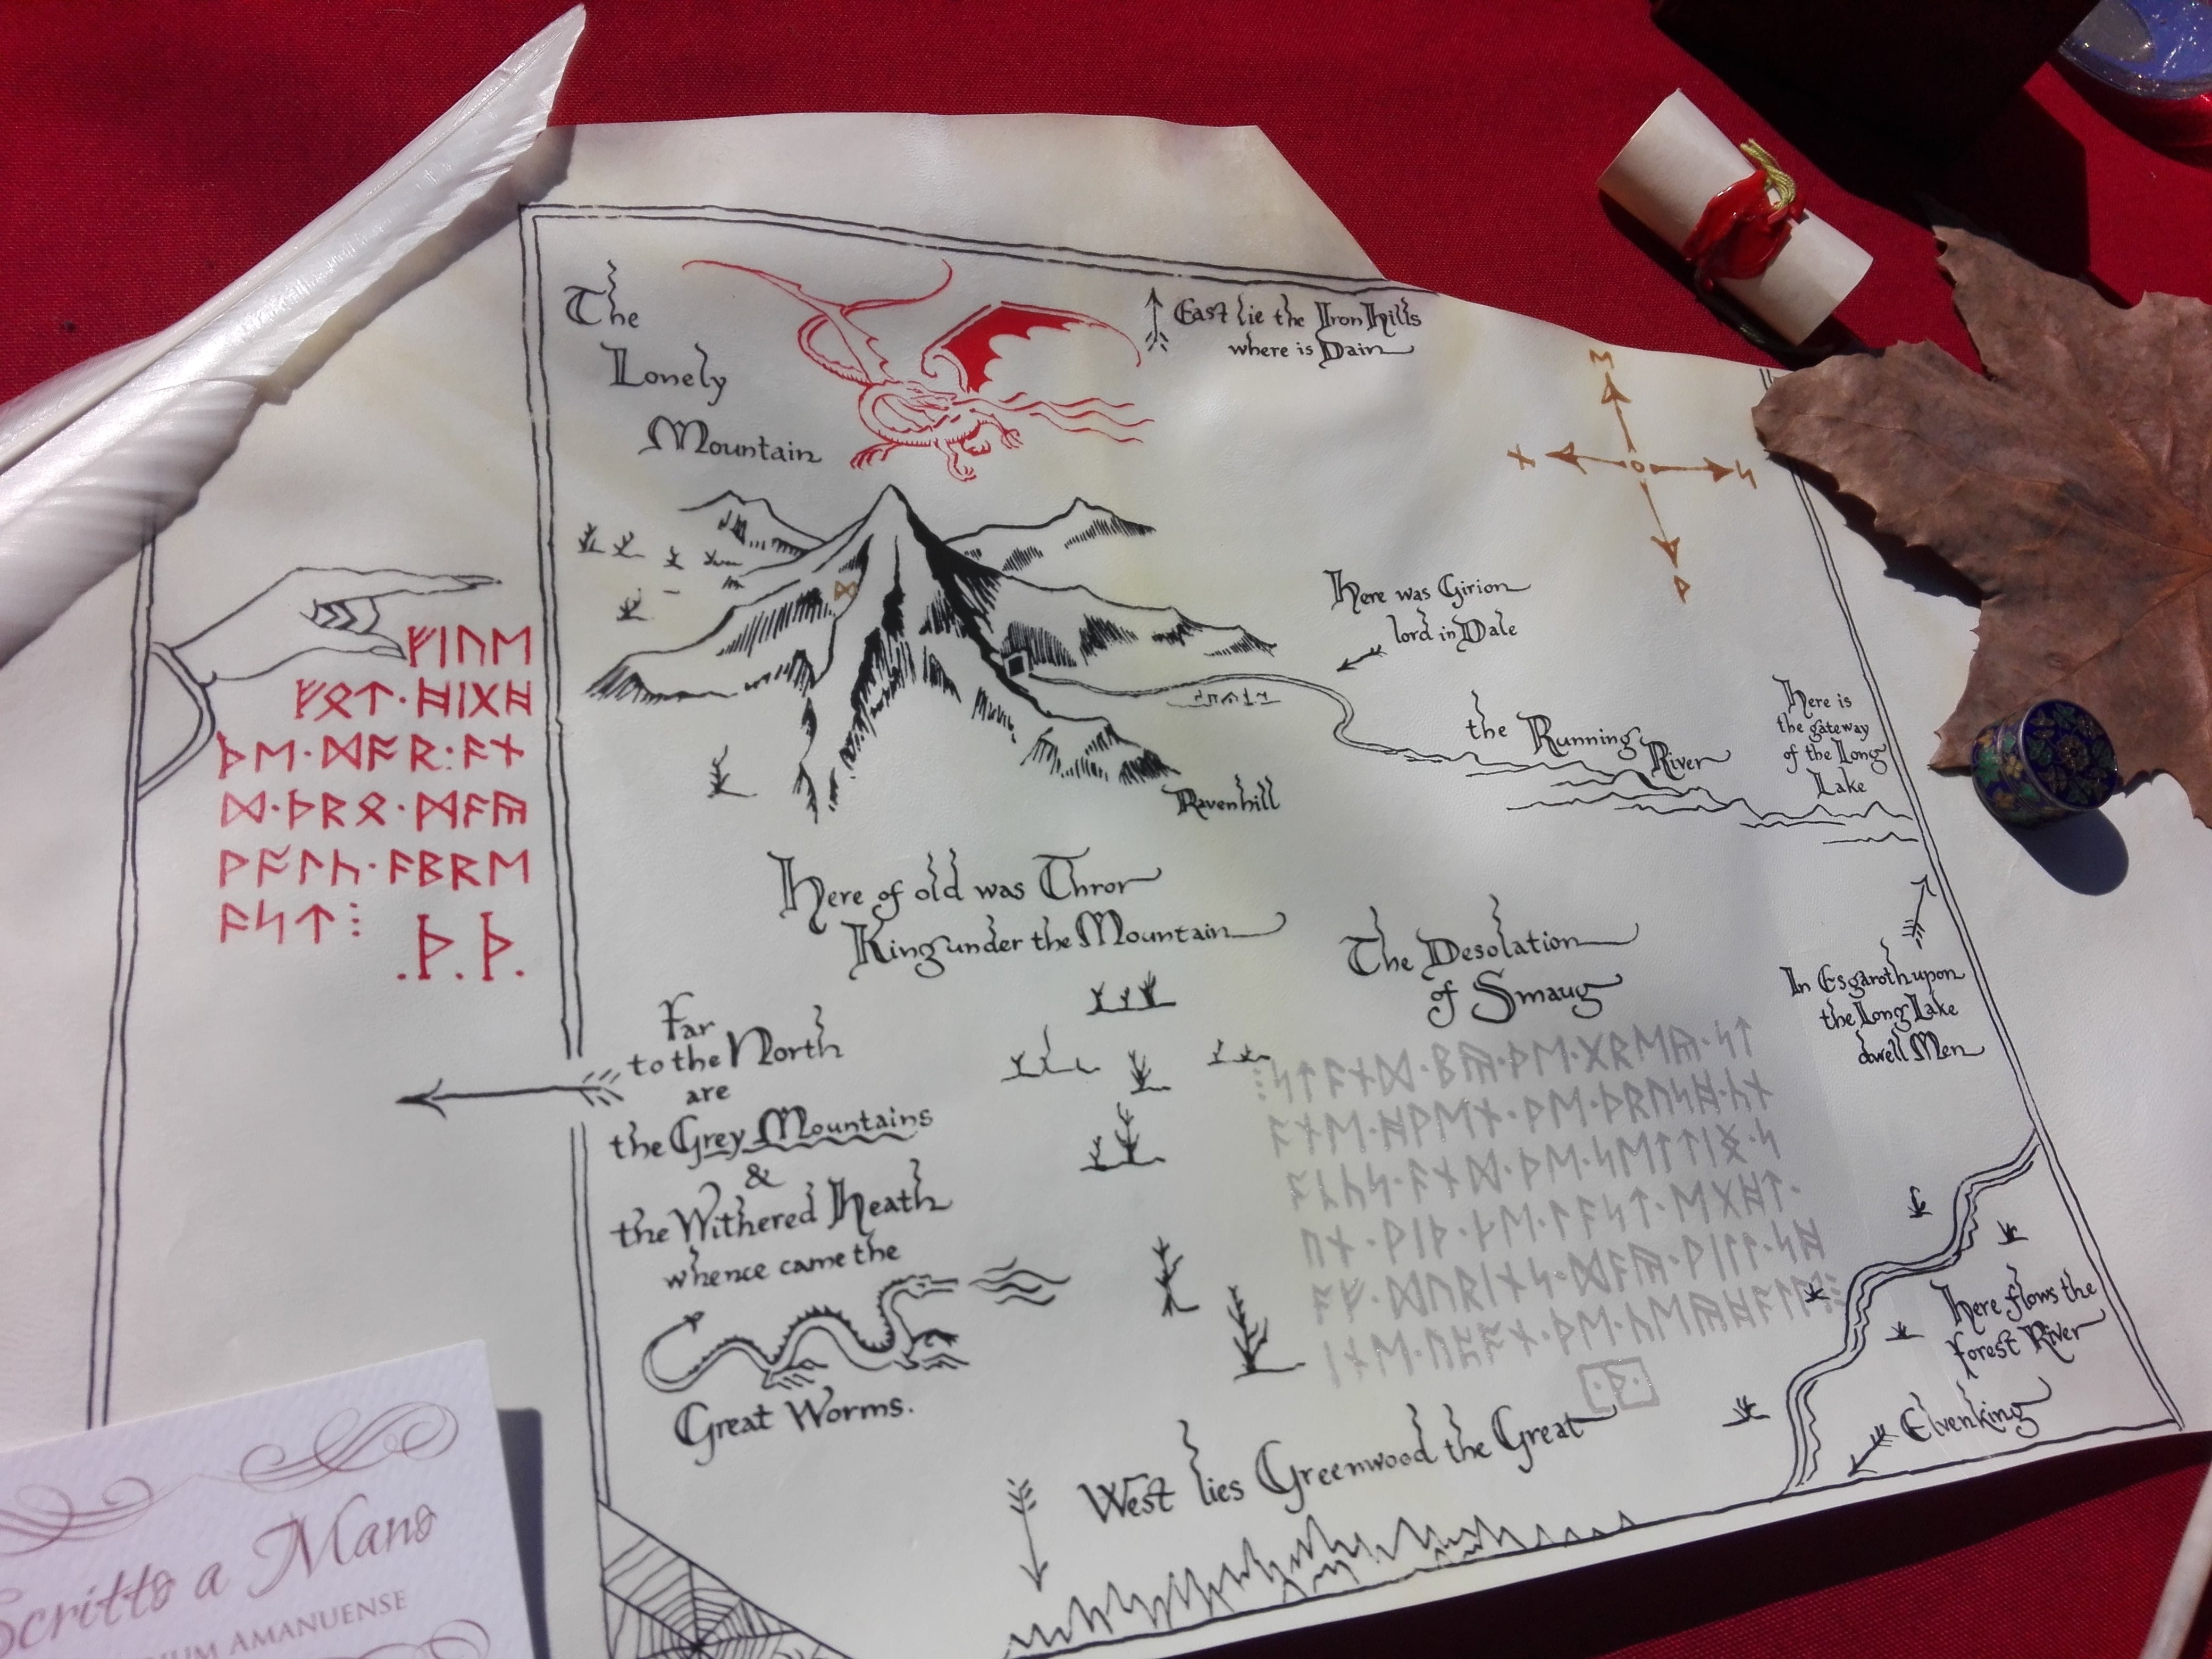 The
Lonely
Mountain
East lie the Iron Hills
where is Dain
ᚠᛁᚢᛖ
ᚠᛟᛏ·ᚻᛁᚷᚻ
ᚦᛖ·ᛞᚫᚱ:ᚫᚾ
ᛞ·ᚦᚱᛟ·ᛗᚫᚣ
ᚹᚩᛚᚳ·ᚫᛒᚱᛖ
ᚫᛋᛏ⁝
.ᚦ.ᚦ.
Here was Girion
lord in Dale
the Running
River
Here is
the gateway
of the Long
Lake
Ravenhill
Here of old was Thror
King under the Mountain
The Desolation
of Smaug
In Esgaroth upon
the Long Lake
dwell Men
Far
to the North
are
the Grey Mountains
&
the Withered Heath
whence came the
Great Worms.
West lies Greenwood the Great
Here flows the
forest River
Elvenking
Scritto a Mano
AMANUENSE